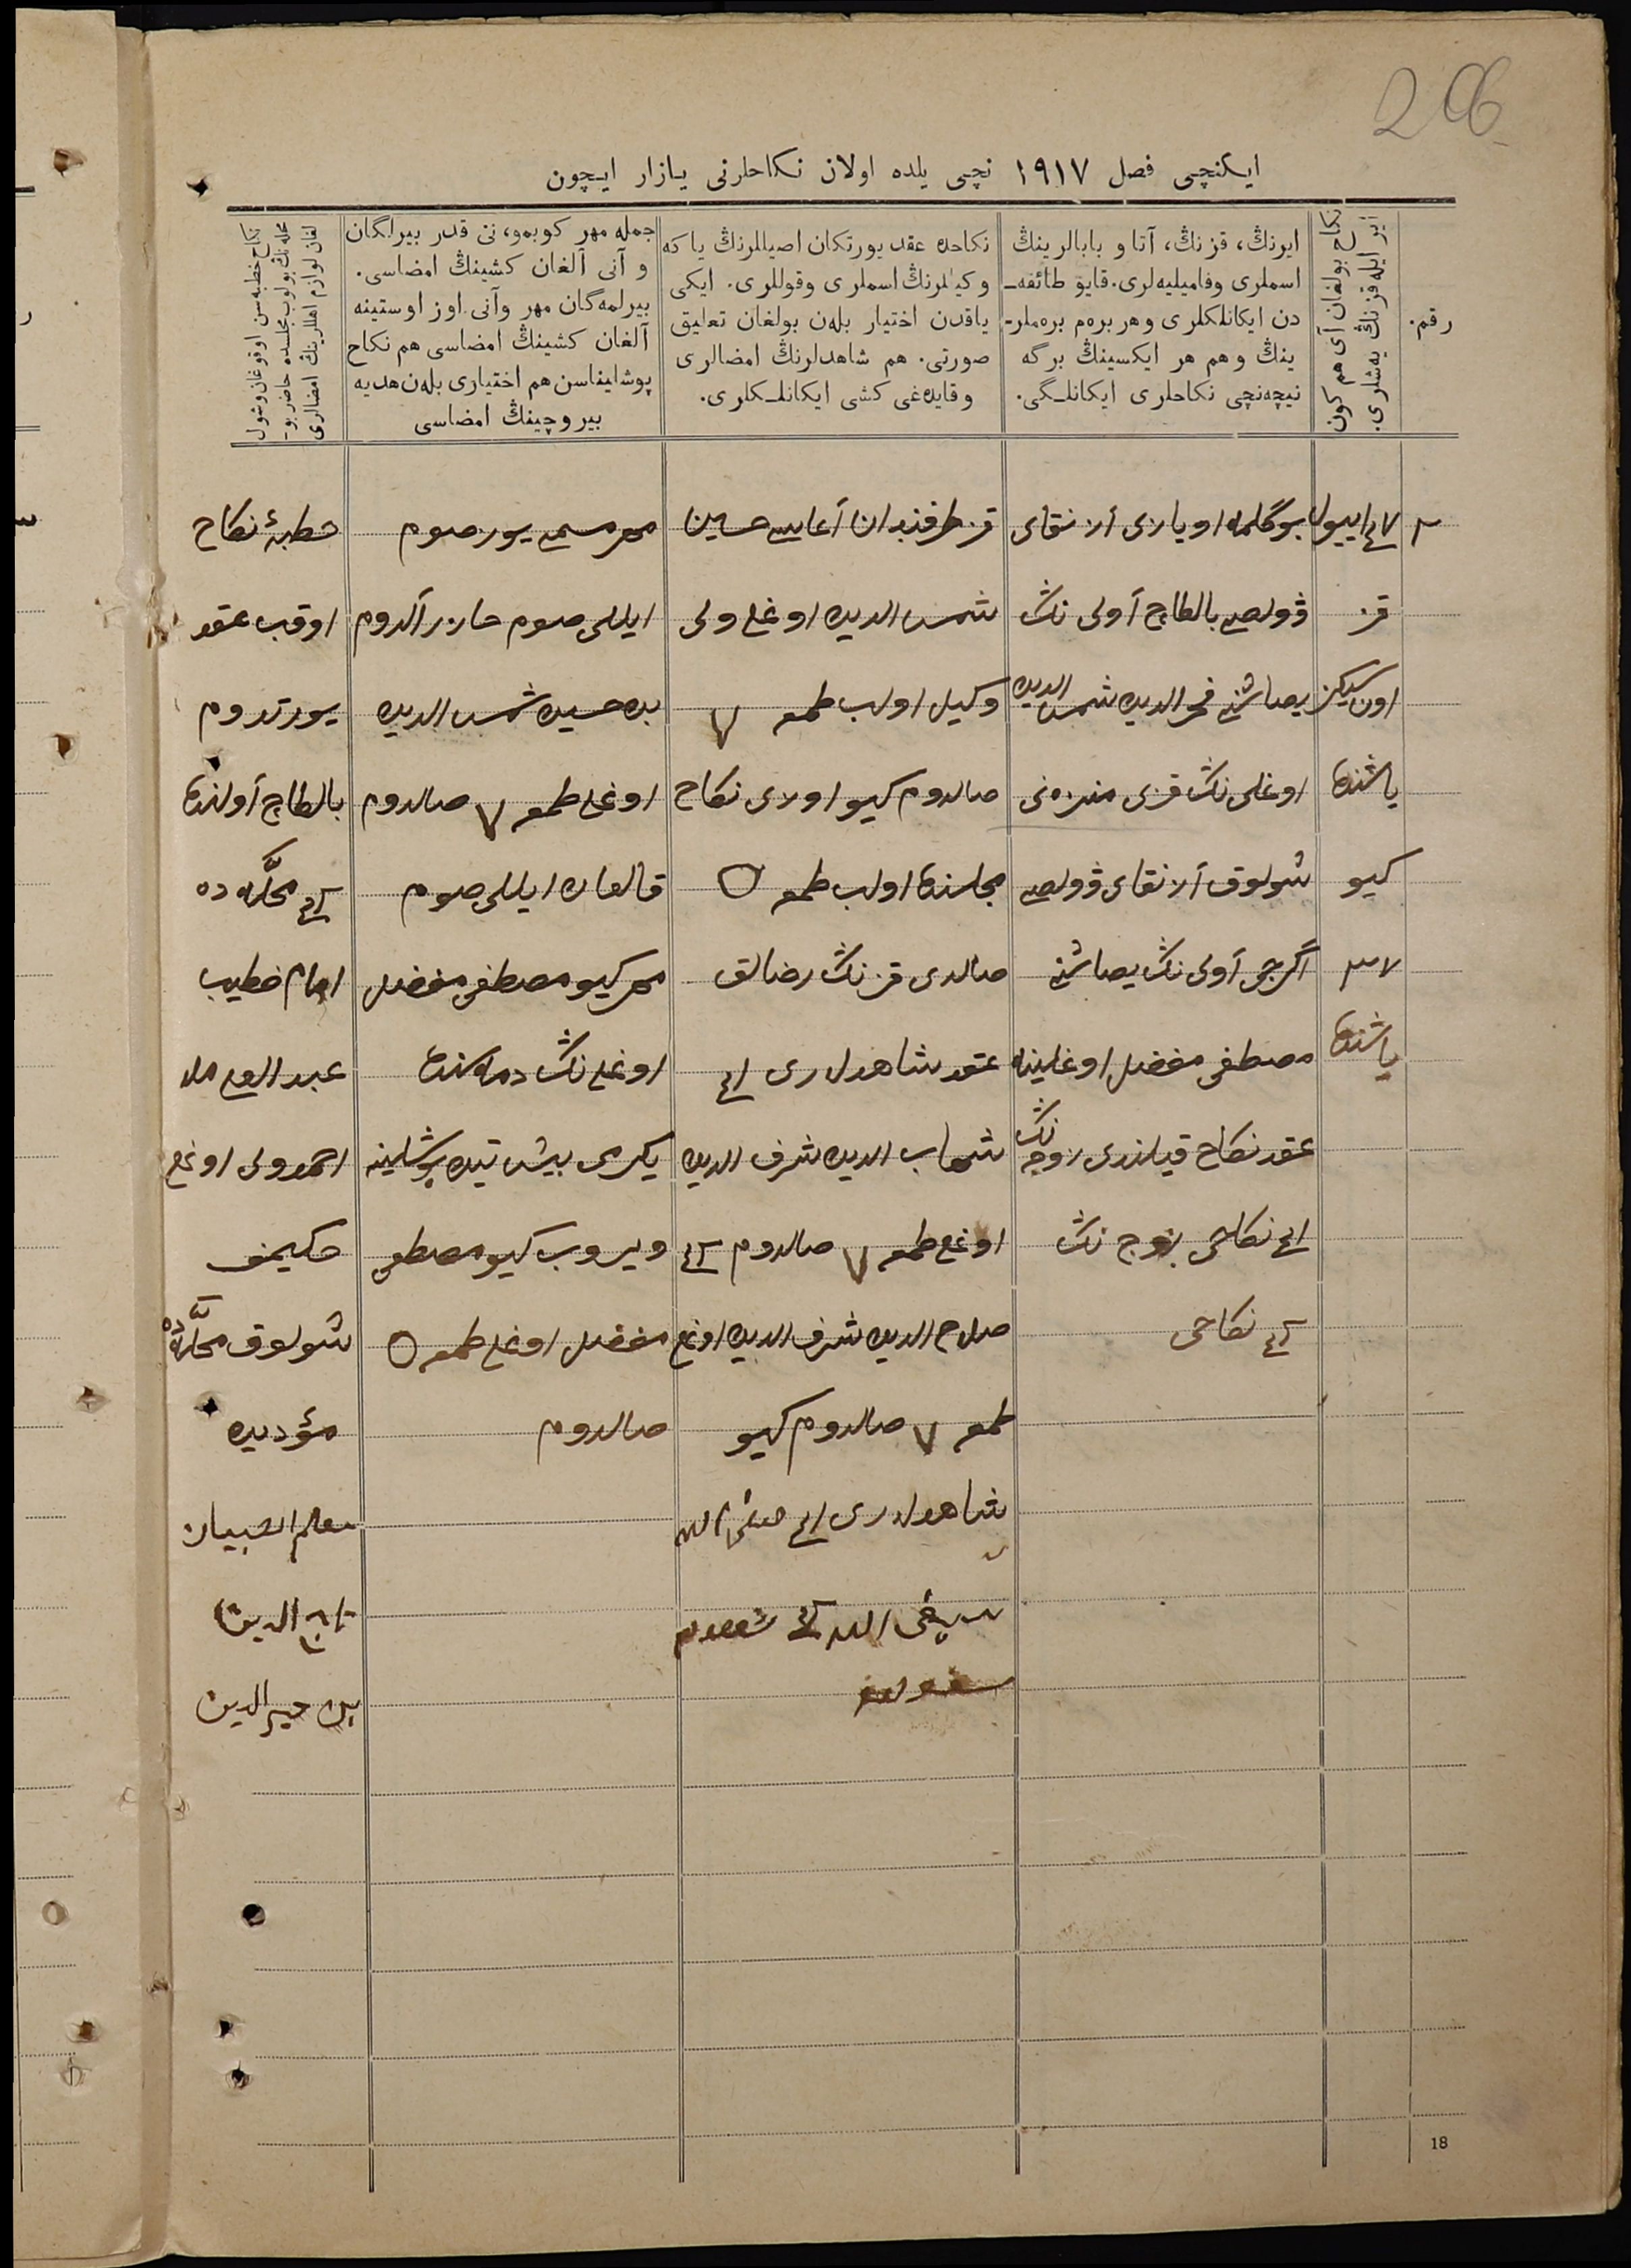 206
ایکنچی فصل ١٩١٧ نچی یلده اولان نکاحلرنی یازار ایچون
رقم.
نکاح بولغان آی هم کون
ایر ایله قزنڭ یەشلری.
ایرنڭ، قزنڭ، آتا و بابالرینڭ
اسملری وفامیلیەلری. قایو طائفه‌ـ
دن ایکانلکلری و هر برەم برەملر‌ـ
ینڭ و هم هر ایکسینڭ برگه
نیچەنچی نکاحلری ایکانلـگی.
نکاحده عقد یورتکان اصیللرنڭ یا که
وکیللرنڭ اسملری وقوللری. ایکی
یاقدن اختیار بلەن بولغان تعلیق
صورتی. هم شاهدلرنڭ امضالری
وقایدەغی کشی ایکانلـکلری.
جمله مهر کوبمو، نی قدر بیرلگان
و آنی آلغان کشینڭ امضاسی.
بیرلمەگان مهر وآنی اوز اوستینه
آلغان کشینڭ امضاسی هم نکاح
پوشلیناسن هم اختیاری بلەن هدیه
بیروچینڭ امضاسی
نکاح خطبه‌سن اوقوغان وشول
محله‌نڭ بولوب مجلسده حاضر بو‌ـ
لغان لوازم اهللارینڭ امضالری
٢
١٧ نچی اییول
قز
اون سیکز
یاشنده
کیو
٣٧
یاشنده
بوگلمه اویازی آلانقای
ڤولصی بالطاچ آولی نڭ
یصاشنی فخرالدین شمس الدین
اوغلی نڭ قزی منزەنی
شولوق آلانقای ڤولصی
اگرجی آولی نڭ یصاشنی
مصطفی مفضل اوغلینه
عقد نکاح قیلندی زوجه نڭ
١نچی نکاحی زوج نڭ
٢نچی نکاحی
قز طرفندان آغاسی حسین
شمس الدین اوغلی ولی
وکیل اولب طمغه ٧
صالدوم کیو اولای نکاح
مجلسنده اولب طمغه O
صالدی قز نڭ رضالق
عقد شاهدلری ١نچی
شهاب الدین شرف الدین
اوغلی طمغه ٧ صالدوم ٢نچی
صلاح الدین شرف الدین اوغلی
طمغه ٧ صالدوم کیو
شاهدلری ١نچی
سیفی الله ٢نچی
مهر مسمی یوز صوم
ایللی صوم حاضر آلدوم
بن حسین شمس الدین
اوغلی طمغه ٧ صالدوم
قالغان ایللی صوم
مهر کیو مصطفی مفضل
اوغلی نڭ ذمه‌سنده
یکرمی بیش تین پوشلینه
ویروب کیو مصطفی
مفضل اوغلی طمغه O
صالدوم
خطبۀ نکاح
اوقب عقد
یورتدوم
بالطاچ آولنده
٢نچی محلّه ده
امام خطیب
عبد العلی ملا
احمدولی اوغلی
حکیمف
شولوق محلّه ده
مؤذین
معلم الصبیان
تاج الدین
بن خیرالدین
18